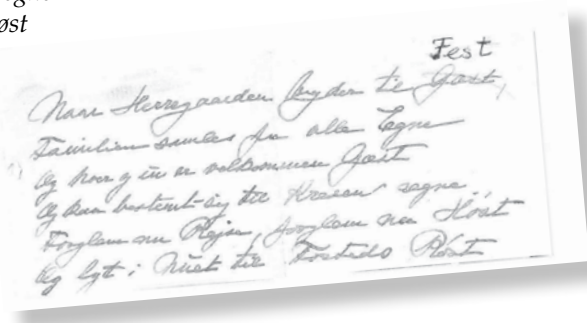 øst
Fest
Naar Herregaarden byder til Gæst,
Familien samles fra alle Egne
Og hver en er velkommen Gæst
Og kan bestemt sig til Kroen regne.
Forglem nu Pløjen, forglem nu Høst
Og lyt i Nuet til Fortids Røst